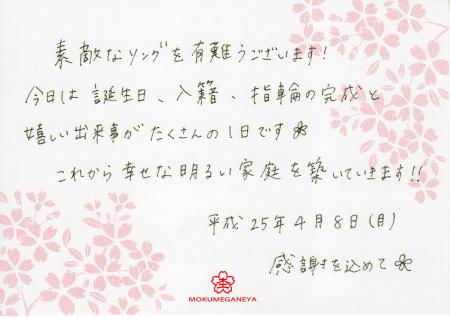 素敵なリングを有難うございます!
今日は誕生日、入籍、指輪の完成と
嬉しい出来事がたくさんの1日です
これから幸せな明るい家庭を築いていきます!!
平成25年4月8日(月)
感謝を込めて
MOKUMEGANEYA